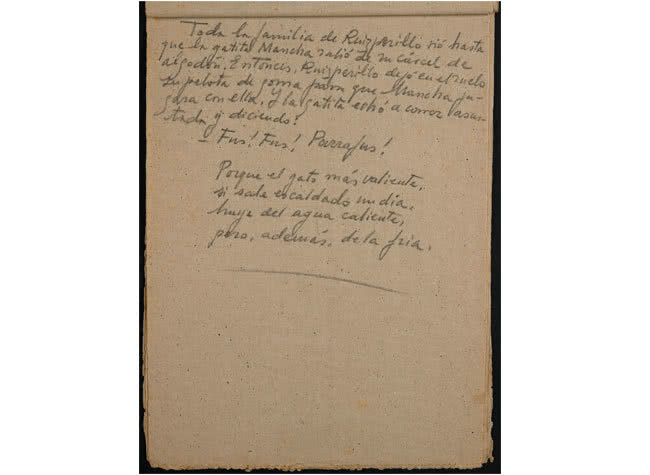 Toda la familia de Ruizperillo rió hasta
que la gatita Mancha salió de su cárcel de
algodón. Entonces, Ruizperillo dejó en el suelo
su pelota de goma para que Mancha ju-
gara con ella. Y la gatita echó a correr asus-
tada y diciendo:
— Fus! Fus! Parrafus!
Porque el gato más valiente,
si sale escaldado un día,
huye del agua caliente,
pero, además, de la fría.